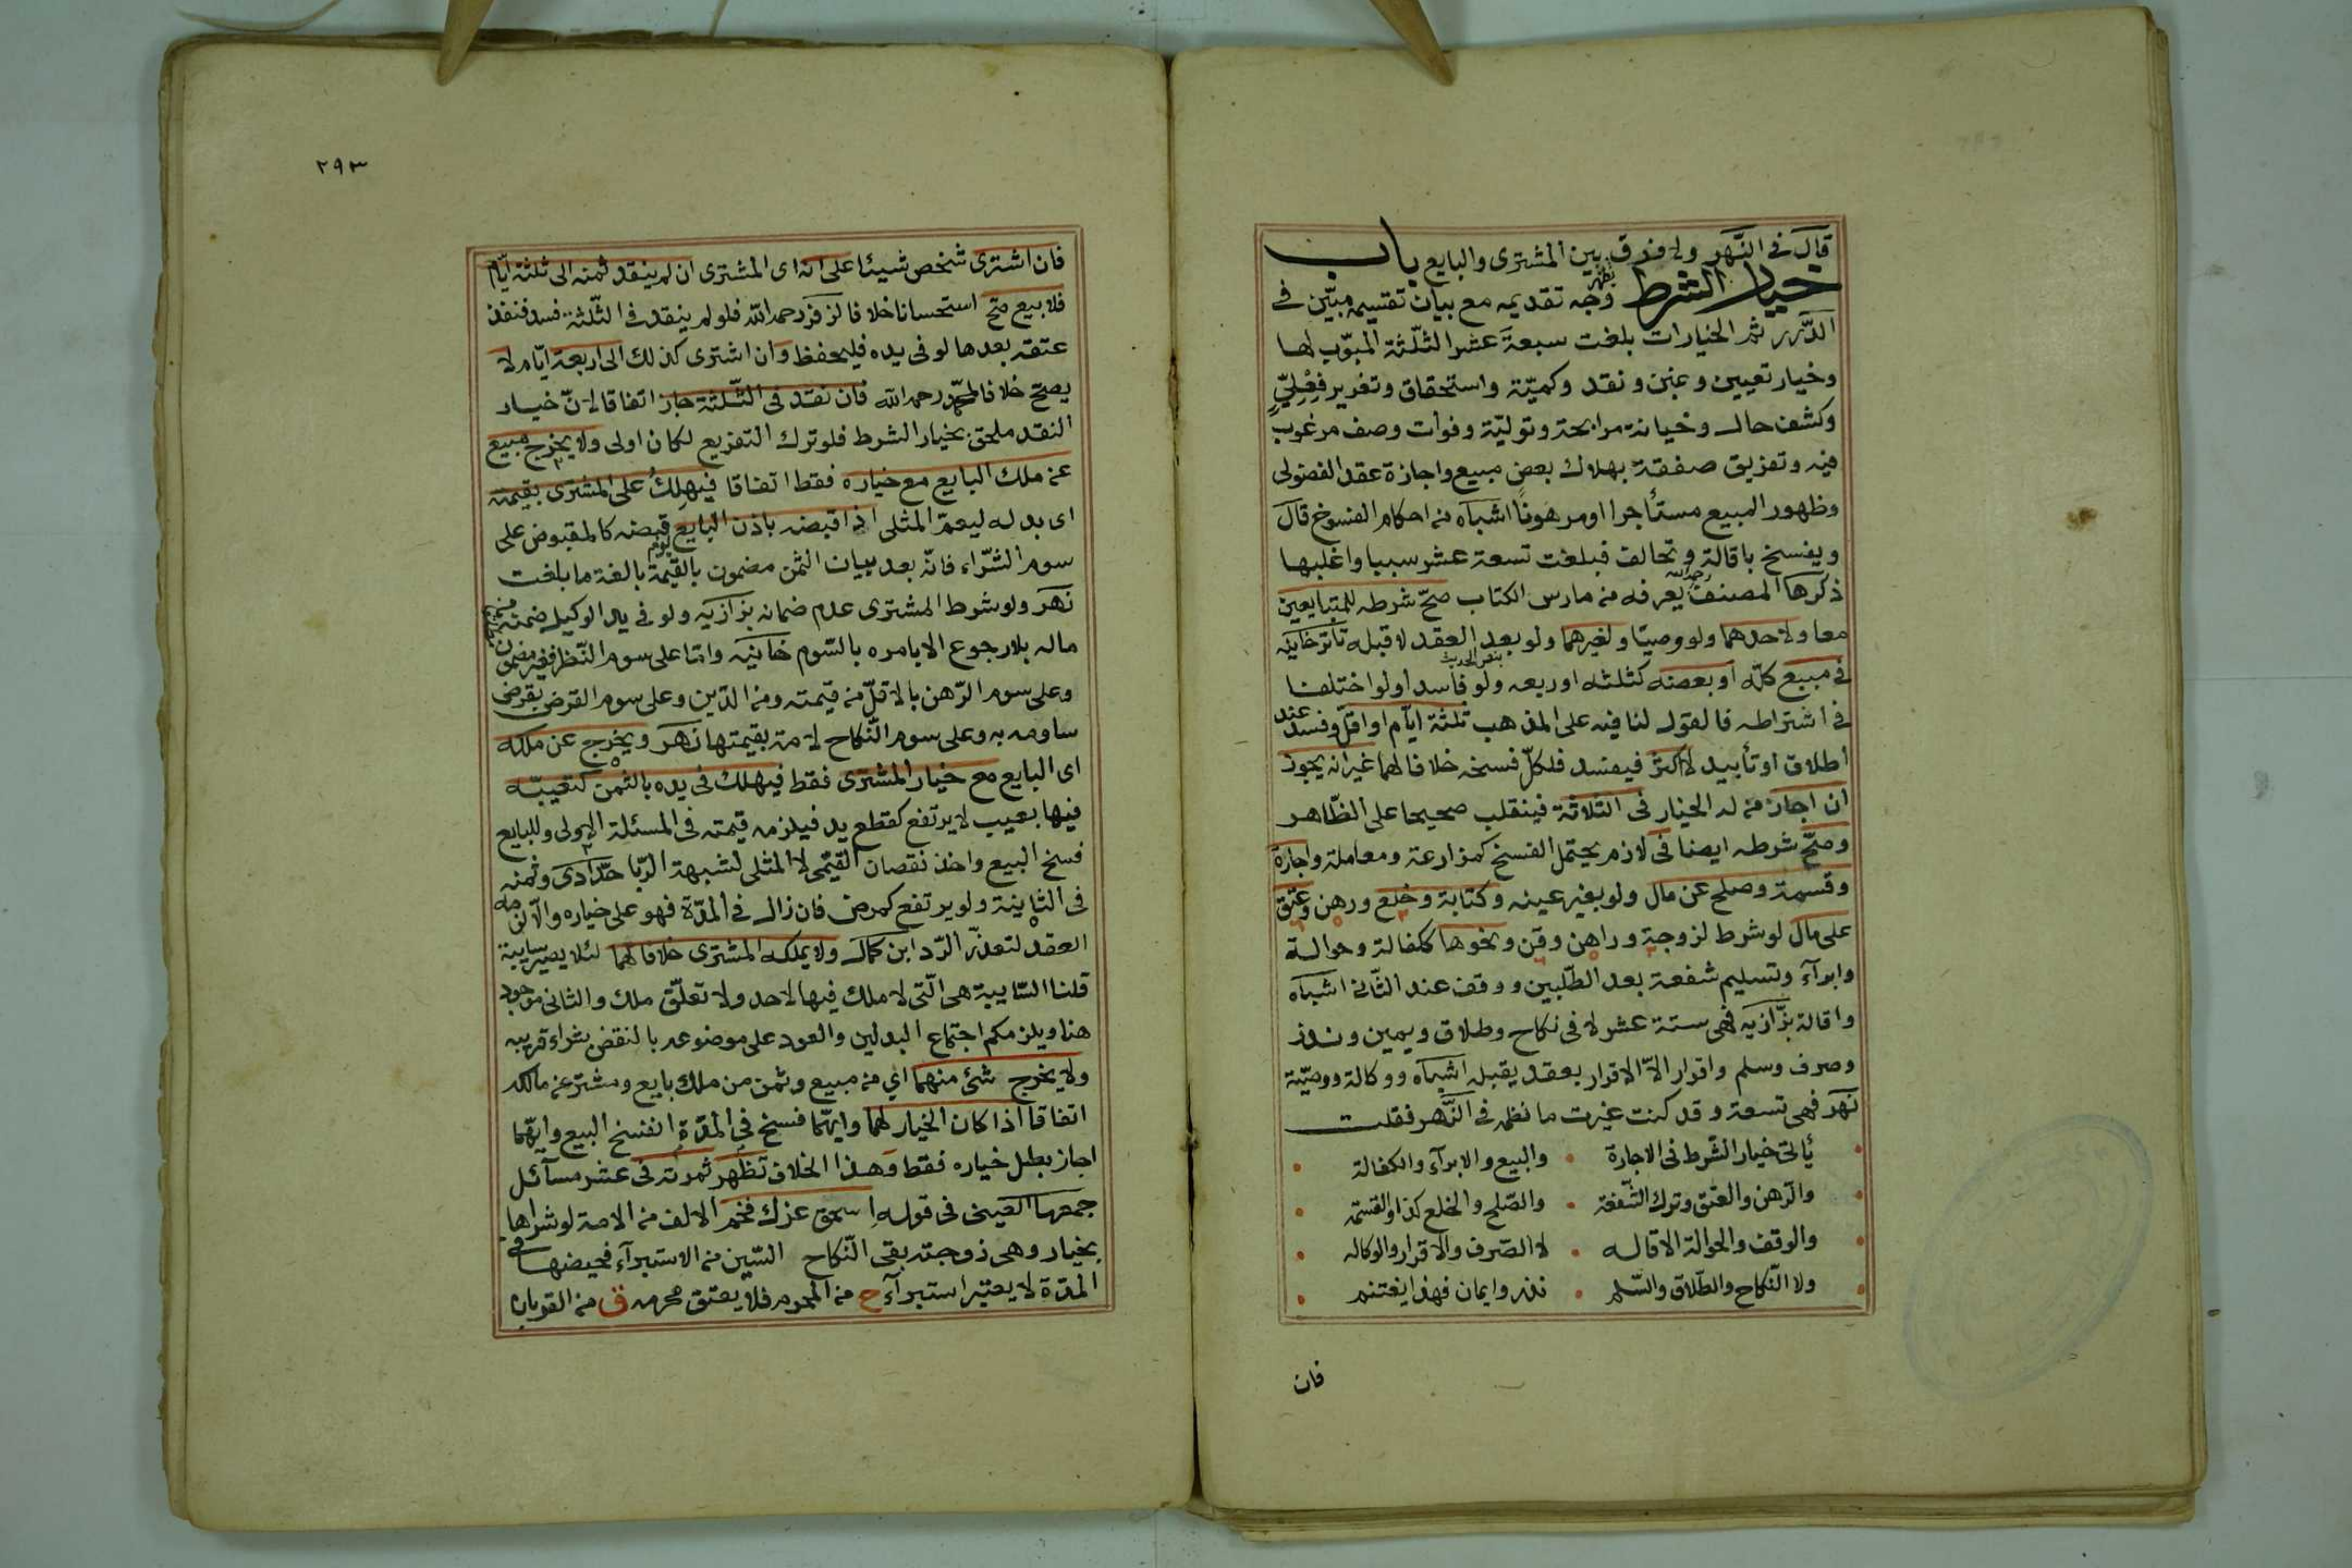 قال فى النهر ولا فرق بين المشترى والبايع باب
خيار الشرط وجه تقديمه مع بيان تقسيمه مبيّن فى
الدّرر ثم الخيارات بلغت سبعة عشر الثلثة المبوّب لها
وخيار تعيين وغبن ونقد وكميّة واستحقاق وتغرير فعليّ
وكشف حال وخيانة مرابحة وتوليّة وفوات وصف مرغوب
فيه وتفريق صفقة بهلاك بعض مبيع واجازة عقد الفضولى
وظهور المبيع مستأجرا او مرهونًا اشباه من احكام الفسوخ قال
ويفسخ باقالة وتحالف فبلغت تسعة عشر سببا واغلبها
ذكرها المصنف رحمه الله يعرفه من مارس الكتاب صحّ شرطه للمتبايعين
معا ولاحدهما ولو وصيّا ولغيرهما ولو بعد العقد لا قبله تاترخانيه
فى مبيع كلّه او بعضه كثلثه او ربعه ولو فاسدا ولو اختلفا
فى اشتراطه فالقول لنافيه على المذهب ثلثة ايّام او اقلّ وفسد عند
اطلاق او تأبيد لا اكثر فيفسد فلكلّ فسخه خلافا لهما غير انه يجوز
ان اجاز من له الخيار فى الثلاثة فينقلب صحيحا على الظّاهر
وصحّ شرطه ايضا فى لازم يحتمل الفسخ كمزارعة ومعاملة واجارة
وقسمة وصلح عن مال ولو بغير عينه وكتابة وخلع ورهن وعتق
على مال لو شرط لزوجة وراهن وقن ونحوها ككفالة وحوالة
وابرآء وتسليم شفعة بعد الطّلبين ووقف عند الثّانى اشباه
واقالة بزّازيه فهى ستة عشر لا فى نكاح وطلاق ويمين ونذر
وصرف وسلم واقرار الاّ الاقرار بعقد يقبله اشباه ووكالة ووصيّة
نهر فهى تسعة وقد كنت غيرت ما نظمه فى النّهر فقلت
يأتى خيار الشّرط فى الاجارة • والبيع والابرآء والكفالة
والرّهن والعتق وترك الشّفعة • والصّلح والخلع كذا والقسمة
والوقف والحوالة الاقاله • لا الصّرف والاقرار والوكاله
ولا النّكاح والطّلاق والسّلم • نذر وايمان فهذا يغتنم
فان
٢٩٣
فان اشترى شخص شيئا على انه اى المشترى ان لم ينقد ثمنه الى ثلثة ايّام
فلا بيع صح استحسانا خلافا لزفر رحمه الله فلو لم ينقد فى الثّلثة فسد فنفذ
عتقه بعدها لو فى يده فليحفظ وان اشترى كذلك الى اربعة ايّام لا
يصح خلافا لمحمّد رحمه الله فان نقد فى الثّلثة جاز اتفاقا لانّ خيار
النقد ملحق بخيار الشرط فلو ترك التفريع لكان اولى ولا يخرج مبيع
عن ملك البايع مع خياره فقط اتفاقا فيهلك على المشترى بقيمته
اى بدله ليعمّ المثلى اذا قبضه باذن البايع يوم قبضه كالمقبوض على
سوم الشّراء فانّه بعد بيان الثمن مضمون بالقيمة بالغة ما بلغت
نهر ولو شرط المشترى عدم ضمانه بزازيه ولو فى يد الوكيل ضمنه من
ماله بلا رجوع الا بامره بالسّوم خانيه وامّا على سوم النّظر فغير مضمون
وعلى سوم الرّهن بالاقلّ من قيمته ومن الدّين وعلى سوم القرض بقرض
ساومه به وعلى سوم النّكاح لامة بقيمتها نهر ويخرج عن ملكه
اى البايع مع خيار المشترى فقط فيهلك فى يده بالثمن كتعيبّه
فيها بعيب لا يرتفع كقطع يد فيلزمه قيمته فى المسئلة الاولى وللبايع
فسخ البيع واخذ نقصان القيمى لا المثلى لشبهة الرّبا حدّادى وثمنه
فى الثانية ولو يرتفع كمرض فان زال فى المدّة فهو على خياره والا لزمه
العقد لتعذّر الرّد ابن كمال ولا يملكه المشترى خلافا لهما لئلا يصير سايبة
قلنا السّايبة هى الّتى لا ملك فيها لاحد ولا تعلّق ملك والثانى موجود
هنا ويلزمكم اجتماع البدلين والعود على موضوعه بالنقض بشراء قريبه
ولا يخرج شئ منهما اي من مبيع وثمن من ملك بايع ومشتر عن مالكه
اتفاقا اذا كان الخيار لهما وايّهما فسخ فى المدّة انفسخ البيع وايّهما
اجاز بطل خياره فقط وهذا الخلاف تظهر ثمرته فى عشر مسآئل
جمعها العينى فى قوله اسحق عزك فخم الالف من الامة لو شراها
بخيار وهى زوجته بقى النّكاح السّين من الاستبرآء فحيضها فى
المدّة لا يعتبر استبرآء ح من المحرم فلا يعتق محرمه ق من القربان